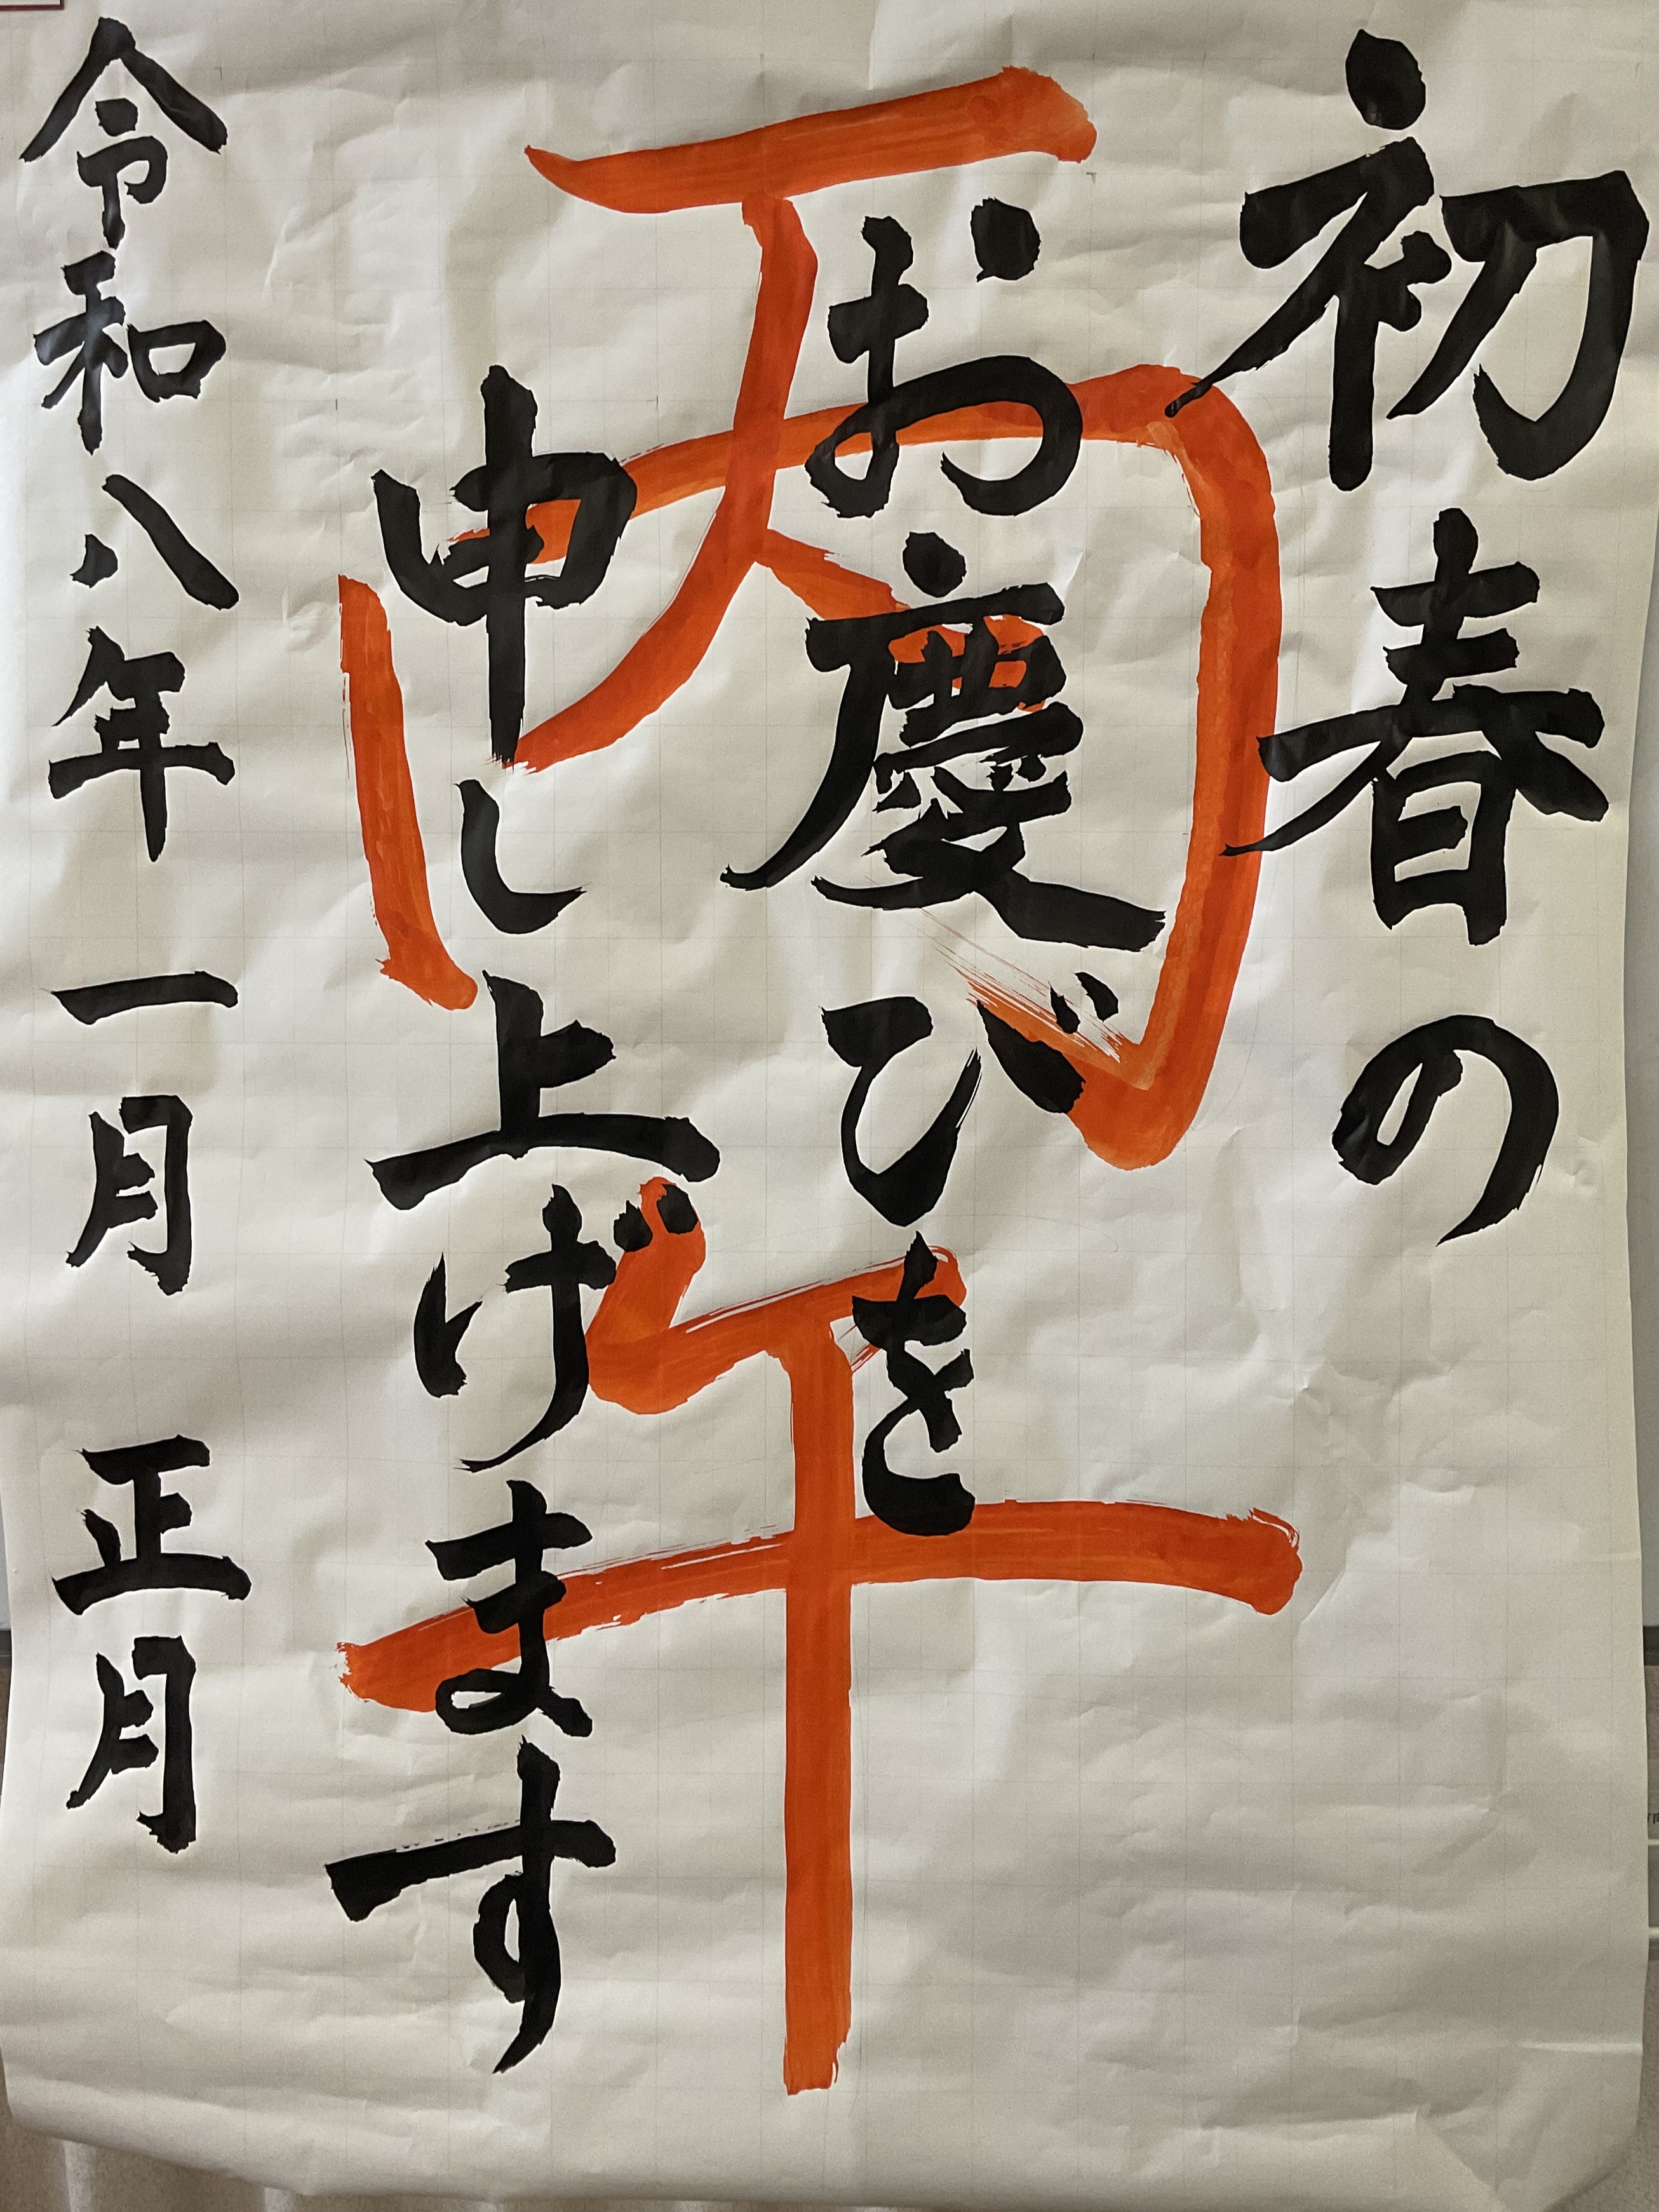 初春の
お慶びを
申し上げます
令和八年 一月 正月
丙午